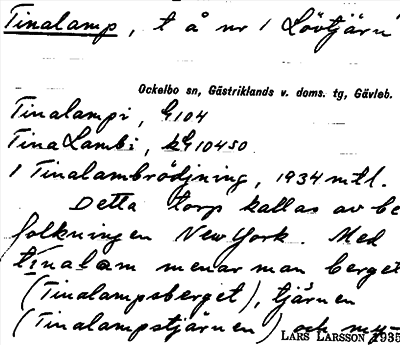 Tinalamp, t å nr 1 Lövtjärn
Ockelbo sn, Gästriklands v. doms. tg, Gävleb.
Tinalampi, G104
Tina Lambi, kG10450
1 Tinalambrödjning, 1934 mtl.
Detta torp kallas av be
folkningen New York. Med
tinalam menar man berget
(Tinalampsberget), tjärnen
(Tinalampstjärnen) och my-
LARS LARSSON 1935